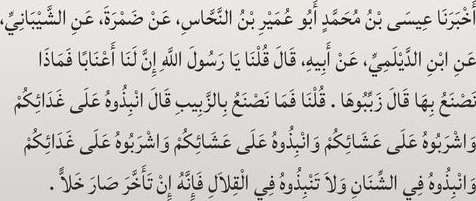 أَخْبَرَنَا عِيسَى بْنُ مُحَمَّدٍ أَبُو عُمَيْرِ بْنُ النَّحَّاسِ، عَنْ ضَمْرَةَ، عَنِ الشَّيْبَانِيِّ،
عَنِ ابْنِ الدَّيْلَمِيِّ، عَنْ أَبِيهِ، قَالَ قُلْنَا يَا رَسُولَ اللَّهِ إِنَّ لَنَا أَعْنَابًا فَمَاذَا
نَصْنَعُ بِهَا قَالَ زَبِّبُوهَا . قُلْنَا فَمَا نَصْنَعُ بِالزَّبِيبِ قَالَ انْبِذُوهُ عَلَى غَدَائِكُمْ
وَاشْرَبُوهُ عَلَى عَشَائِكُمْ وَانْبِذُوهُ عَلَى عَشَائِكُمْ وَاشْرَبُوهُ عَلَى غَدَائِكُمْ
وَانْبِذُوهُ فِي الشِّنَانِ وَلاَ تَنْبِذُوهُ فِي الْقِلاَلِ فَإِنَّهُ إِنْ تَأَخَّرَ صَارَ خَلاًّ .